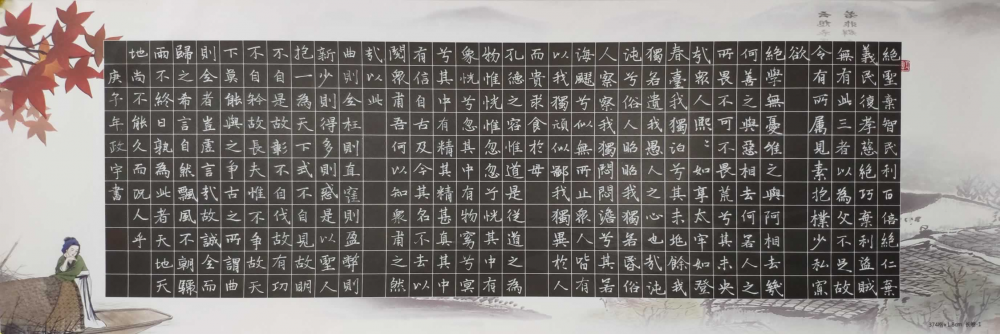 絕聖棄智民利百倍絕仁棄
義民復孝慈絕巧棄利盜賊
無有此三者以為文不足故
令有所属見素抱樸少私寡
欲
絕學無憂唯之與阿相去幾
何善之與惡相去何若人之
所畏不可不畏荒兮其未央
哉眾人熙〻如享太牢如登
春臺我獨泊兮其未兆餘我
獨若遺我愚人之心也哉沌
沌兮俗人昭昭我獨若昏俗
人察察我獨悶悶澹兮其若
海飂兮似無所止眾人皆有
以我獨頑似鄙我獨異人於
而貴求食於母
孔德之容惟道是從道之為
物惟恍惟忽忽兮恍其中有
象恍兮忽其中有物窈兮冥
兮其中有精其精甚真其中
有信自古及今其名不去以
閱眾甫吾何以知眾甫之然
哉以此
曲則全枉則直窪則盈弊則
新少則得多則惑是以聖人
抱一為天下式不自見故明
不自是故彰不自伐故有功
不自矜故長夫惟不爭故天
下莫能與之爭古之所謂曲
則全者豈虛言哉故誠全而
歸之希言自然飄風不朝驟
雨不終日孰為此者天地天
地尚不能久而況人乎
庚子年政宇書